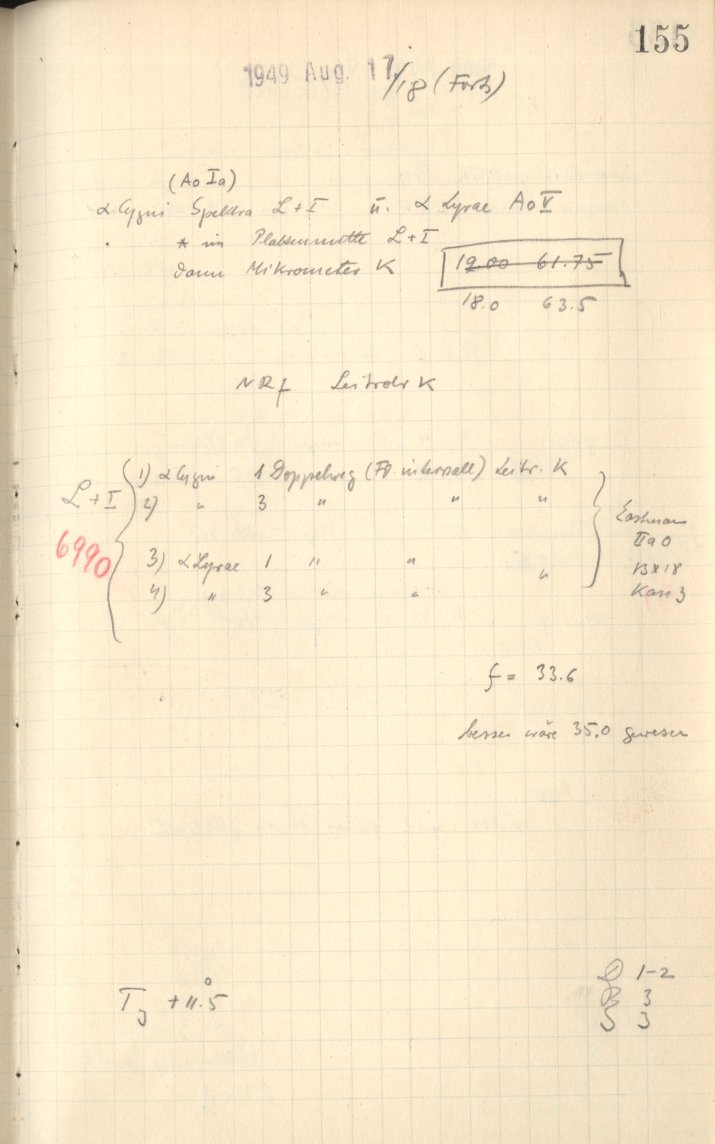 155
1949 Aug. 17/18 (Forts)
(A0 Ia)
α Cygni Spektra L+I u. α Lyrae A0 V
* im Plattenmitte L+I
dann Mikrometer K 19.00 61.75
18.0 63.5
NRf Leitrohr K
L+I
6990
1) α Cygni 1 Doppelweg (intervall) Leitr. K
2) " 3 " " "
3) α Lyrae 1 " "
4) " 3 " " "
Eastman
IIa0
13x18
Kass 3
f = 33.6
besser wäre 35.0 gewesen
T +11.°5
D 1-2
R 3
S 3